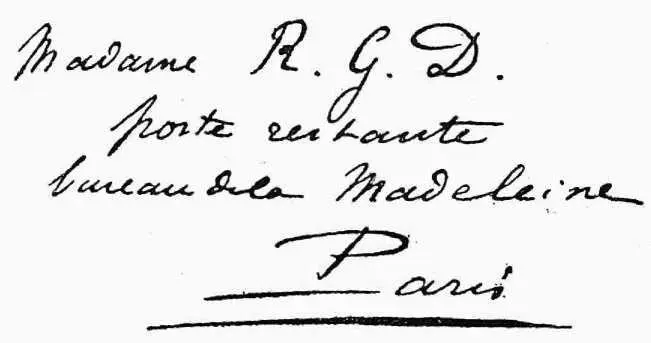 Madame R. G. D.
poste restante
bureau de la Madeleine
Paris